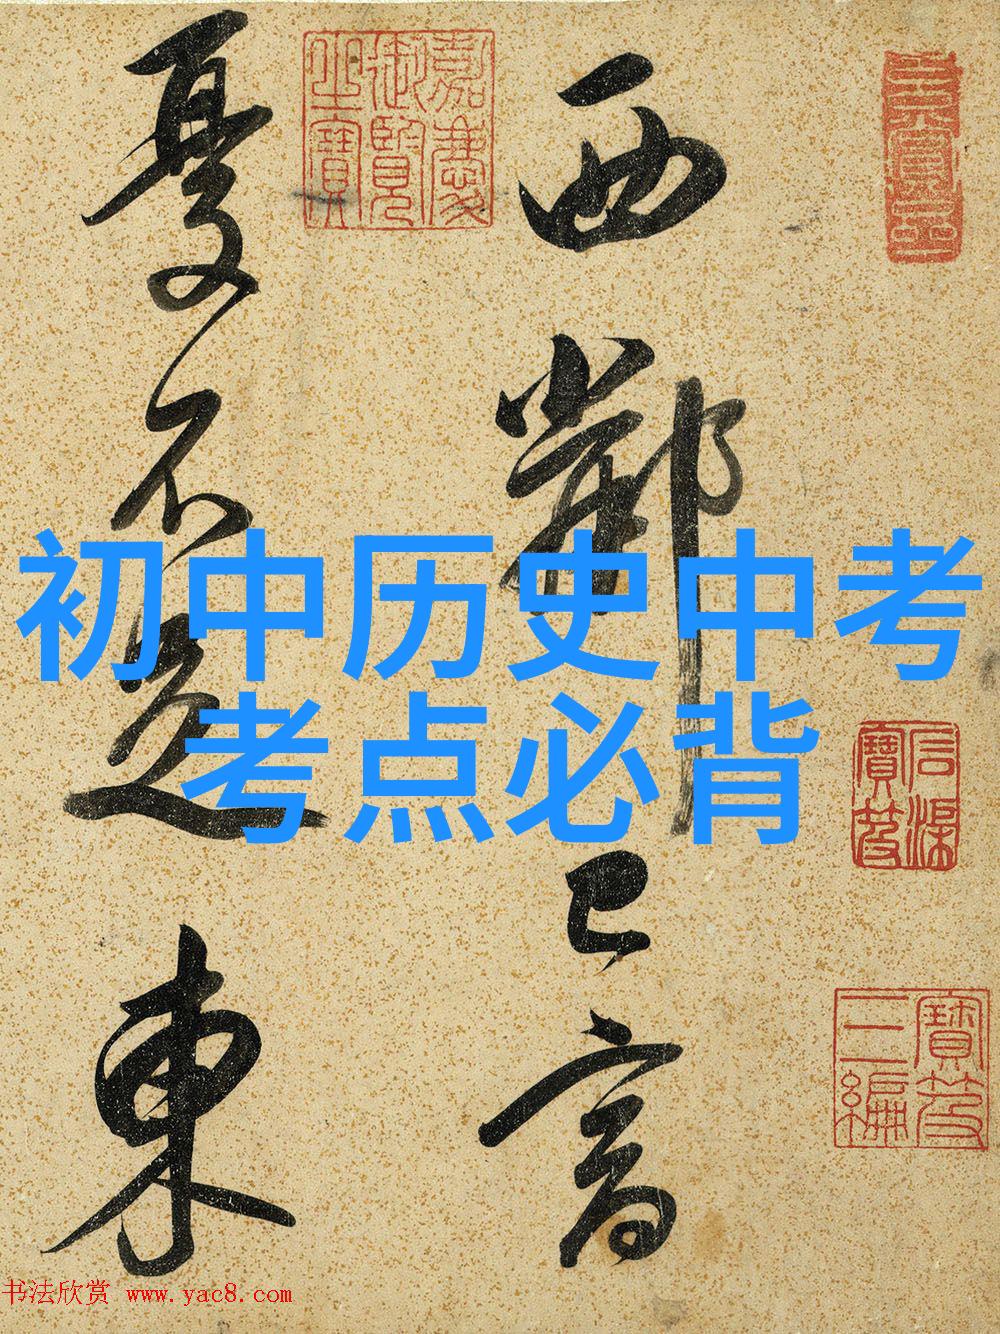 西鄰已富
憂不足東
嘉慶御覽之寶
石渠寶笈
寶笈三編
初中历史中考
考点必背
书法欣赏 www.yac8.com